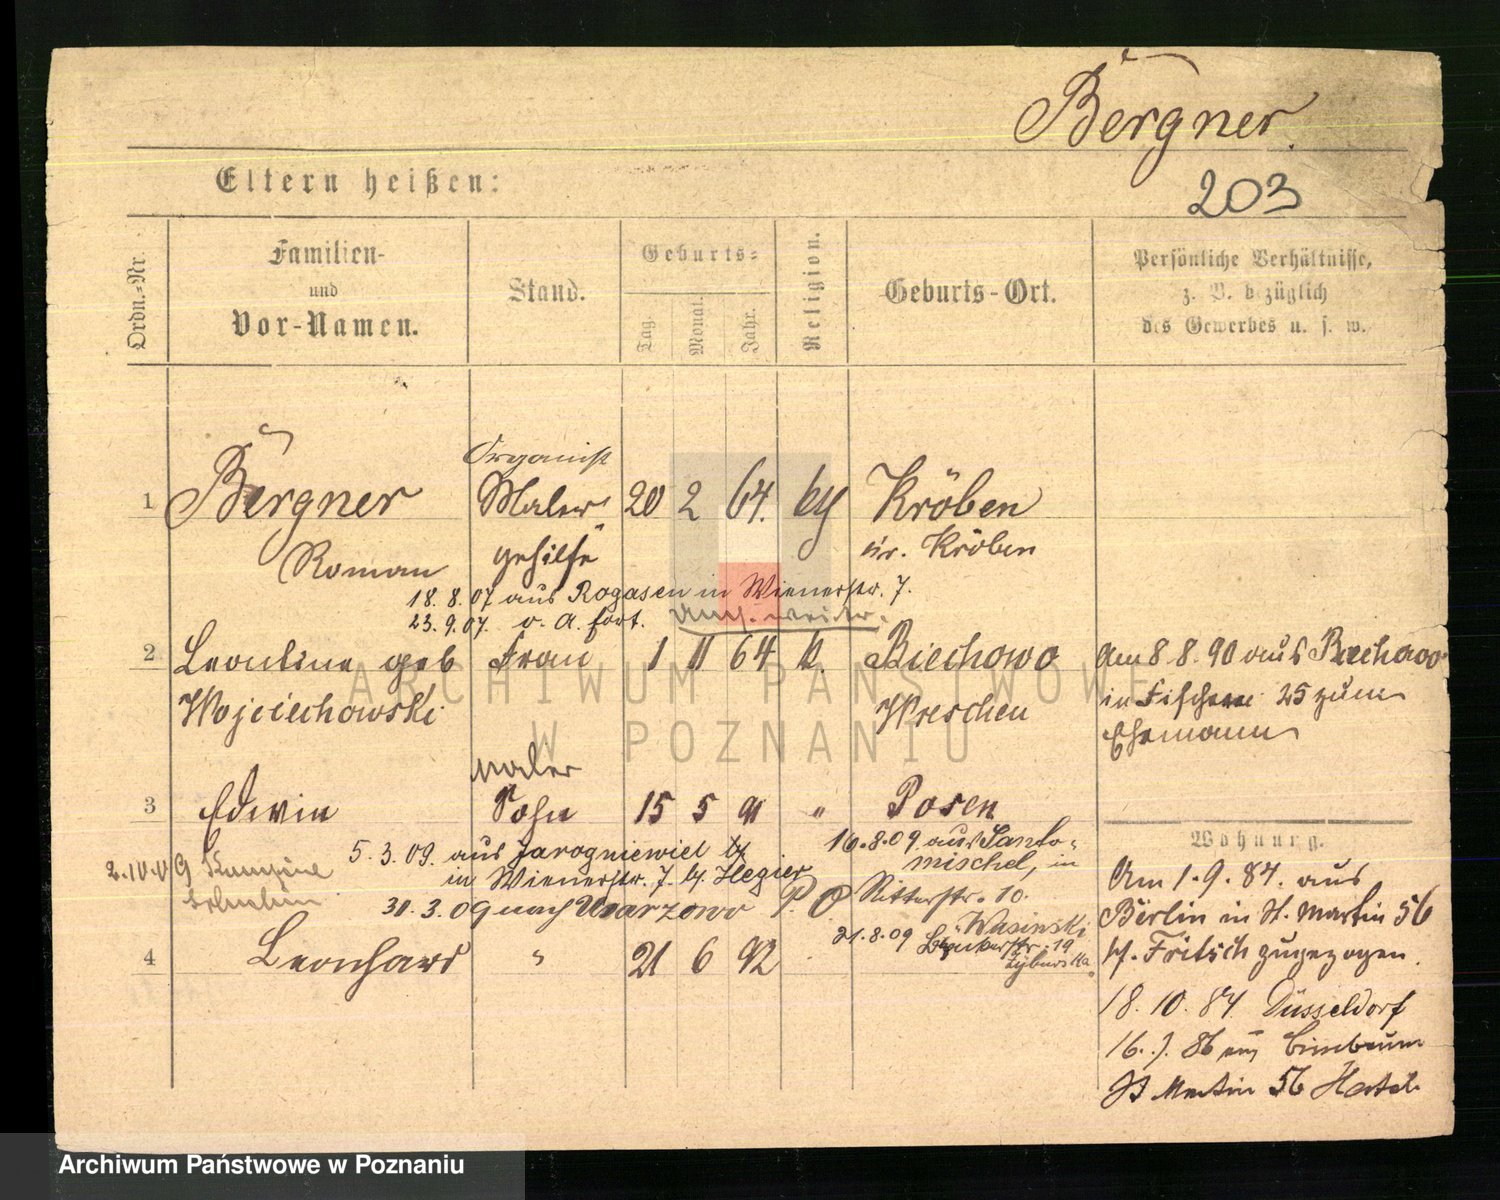 Bergner
203
Eltern heißen:
Ordn.-Nr.
Familien-
und
Vor-Namen.
Stand.
Geburts-
Tag.
Monat.
Jahr.
Religion.
Geburts-Ort.
Persönliche Verhältnisse,
z. B. bezüglich
des Gewerbes u. s. w.
Organist
1 Bergner Maler 20 2 64. Kröben
Roman gehilfe Kr. Kröben
18. 8. 07 aus Rogasen in Wienerstr. 7.
23. 9. 07. v. A. fort.
2 Leontine geb Frau 1 11 64 k. Biechowo Am 8 8. 90 aus Biechowo
Wojciechowski Wreschen in Fischerei 25 zum
Ehemann
Maler
3 Edwin Sohn 15 5 91 " Posen
5. 3. 09. aus Jarogniewiec 16.8.09 aus Santo-
mischel, in
in Wienerstr. 7. Ritterstr. 10.
31. 3. 09 nach
Wasinski
21.8.09
4 Leonhard " 21 6 92
Wohnung.
Am 1. 9. 84. aus
Berlin in St. Martin 56
b/. Fritsch zugezogen.
18. 10. 84 Düsseldorf
16. 7. 86
St Martin 56
ARCHIWUM PAŃSTWOWE
W POZNANIU
Archiwum Państwowe w Poznaniu